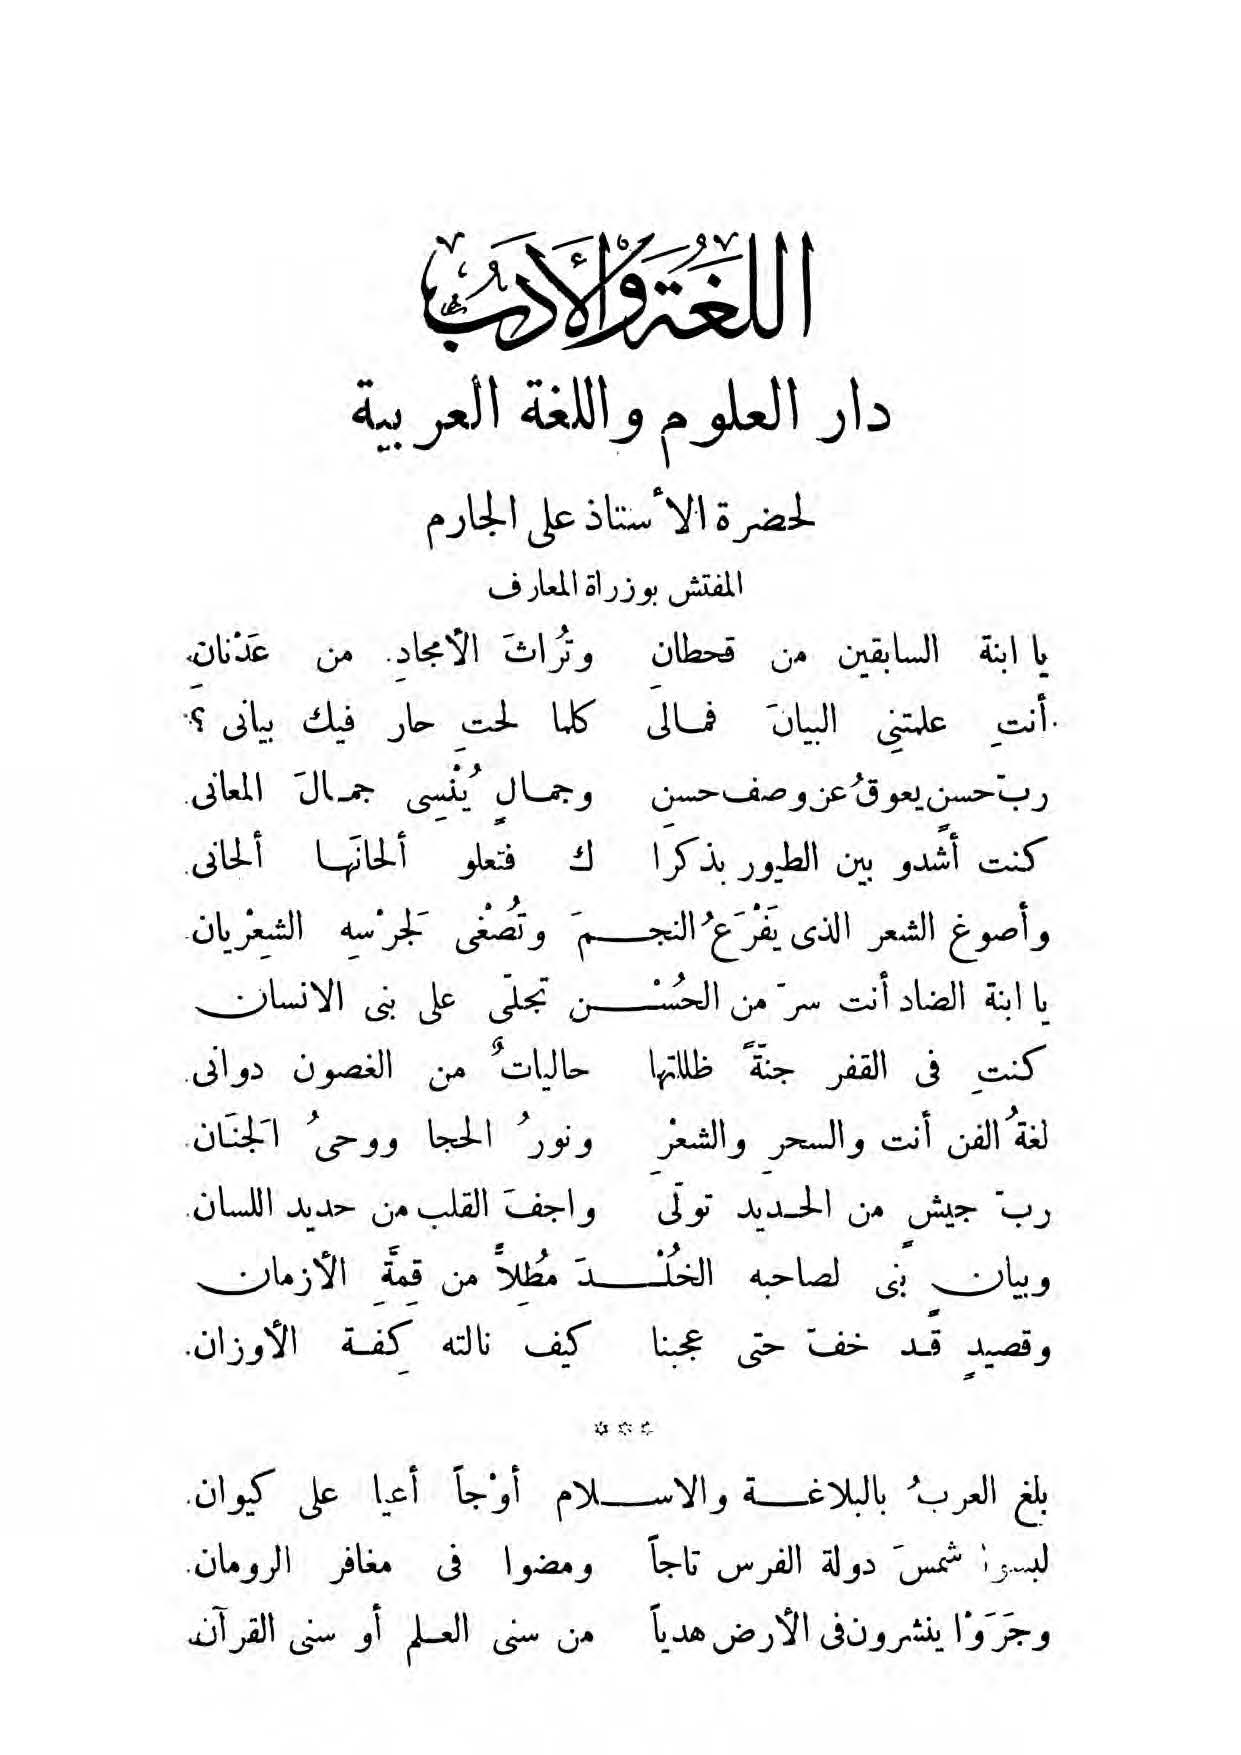 اللغَةُ وَالأَدَبُ
دار العلوم واللغة العربية
لحضرة الأستاذ على الجارم
المفتش بوزراة المعارف
يا ابنة السابقين من قحطانِ وتُراثَ الأمجادِ من عَدْنانِ
أنتِ علمتنِى البيانَ فمالى كلما لحتِ حار فيك بيانى ؟
ربّ حسنٍ يعوقُ عن وصف حسنِ وجمالٍ يُنْسِى جمالَ المعانى
كنت أشدو بين الطيور بذكرا ك فتعلو ألحانَها ألحانى
وأصوغ الشعر الذى يَفْرَعُ النجـمَ وتُصْغى لَجرْسِهِ الشِعْريان
يا ابنة الضاد أنت سرّ من الحُسْـن تجلّى على بنى الانسان
كنتِ فى القفر جنّةً ظللتها حالياتٌ من الغصون دوانى
لغةُ الفن أنت والسحرِ والشعْرِ ونورُ الحجا ووحىُ الَجنَان
ربّ جيشٍ من الحديد تولّى واجفَ القلب من حديد اللسان
وبيانٍ بَنى لصاحبه الخُلْـدَ مُطِلاًّ من قِمَّةِ الأزمان
وقصيدٍ قَد خفّ حتى عجبنا كيف نالته كِفة الأوزان
***
بلغ العربُ بالبلاغة والاسـلام أوْجاً أعيا على كيوان
لبسوا شمسَ دولة الفرس تاجاً ومضوا فى مغافر الرومان
وجَرَوْا ينشرون فى الأرض هدياً من سنى العلم أو سنى القرآن